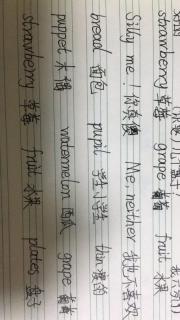 strawberry 草莓 grape 葡萄 fruit 水果
Silly me! 你真傻 Me, neither 我也不喜欢
bread 面包 pupil 学生小学生 thin 瘦的
puppet 木偶 watermelon 西瓜 grape 葡萄
strawberry 草莓 fruit 水果 plates 盘子